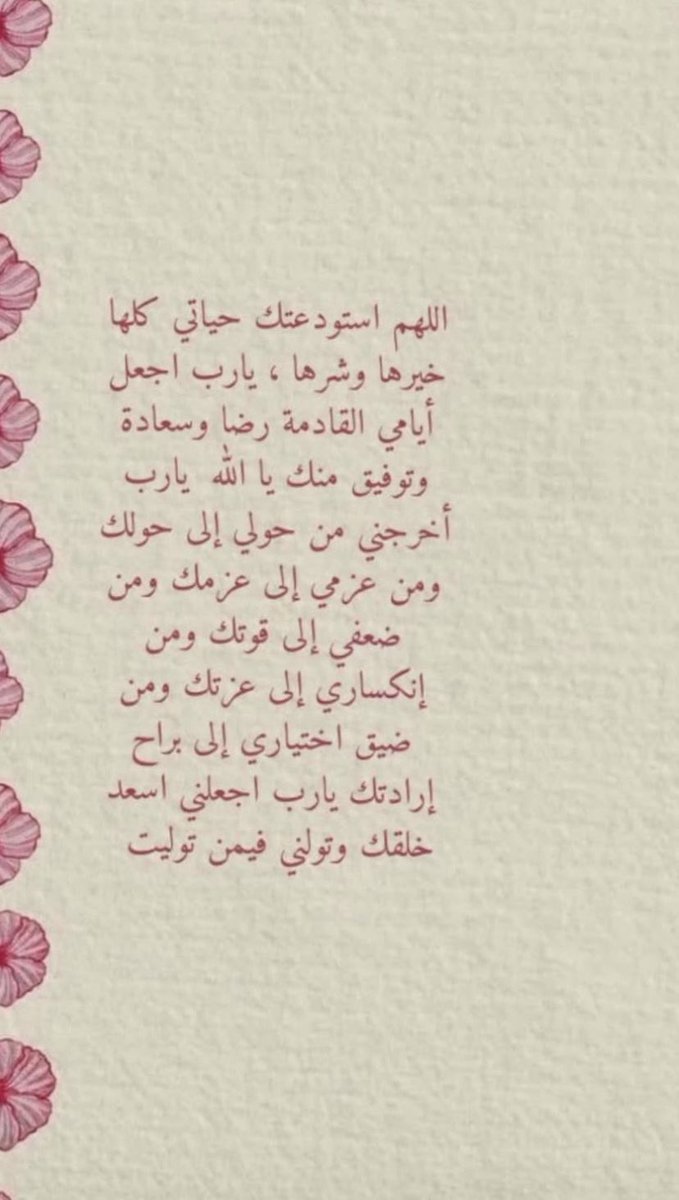 اللهم استودعتك حياتي كلها
خيرها وشرها ، يارب اجعل
أيامي القادمة رضا وسعادة
وتوفيق منك يا الله يارب
أخرجني من حولي إلى حولك
ومن عزمي إلى عزمك ومن
ضعفي إلى قوتك ومن
إنكساري إلى عزتك ومن
ضيق اختياري إلى براح
إرادتك يارب اجعلني اسعد
خلقك وتولني فيمن توليت